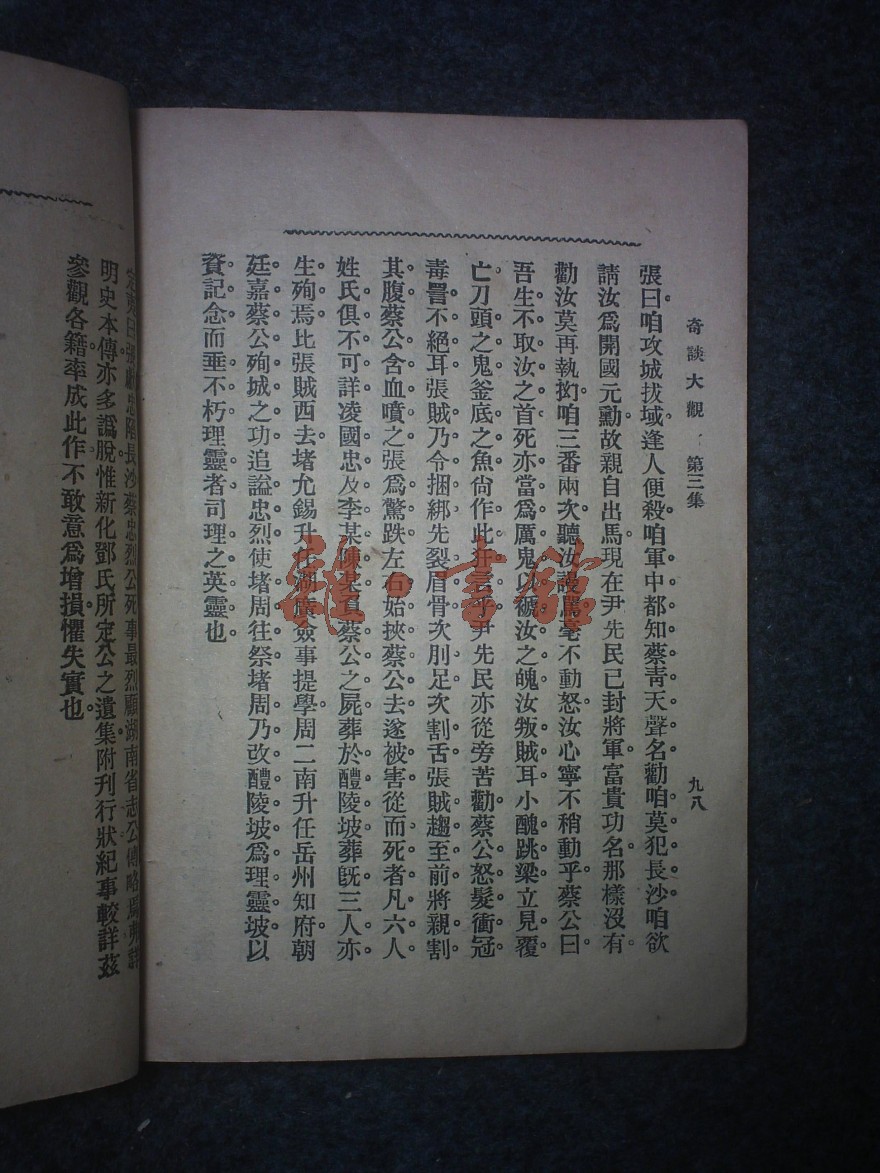 奇談大觀 第三集
九八
張曰咱攻城拔域逢人便殺咱軍中都知蔡靑天聲名勸咱莫犯長沙咱欲
請汝爲開國元勳故親自出馬現在尹先民已封將軍富貴功名那樣沒有
勸汝莫再執拗咱三番兩次聽汝謾罵毫不動怒汝心寧不稍動乎蔡公曰
吾生不取汝之首死亦當爲厲鬼以褫汝之魄汝叛賊耳小醜跳梁立見覆
亡刀頭之鬼釜底之魚尙作此狂言乎尹先民亦從旁苦勸蔡公怒髮衝冠
毒詈不絕耳張賊乃令捆綁先裂眉骨次刖足次割舌張賊趨至前將親割
其腹蔡公含血噴之張爲驚跌左右始挾蔡公去遂被害從而死者凡六人
姓氏俱不可詳凌國忠及李某陳某負蔡公之屍葬於醴陵坡葬旣三人亦
生殉焉比張賊西去堵允錫升任湖廣僉事提學周二南升任岳州知府朝
廷嘉蔡公殉城之功追謚忠烈使堵周往祭堵周乃改醴陵坡爲理靈坡以
資記念而垂不朽理靈者司理之英靈也
定夷曰張獻忠陷長沙蔡忠烈公死事最烈顧湖南省志公傳略焉弗詳
明史本傳亦多譌脫惟新化鄧氏所定公之遺集附刊行狀紀事較詳茲
參觀各籍率成此作不敢意爲增損懼失實也
雜·書館